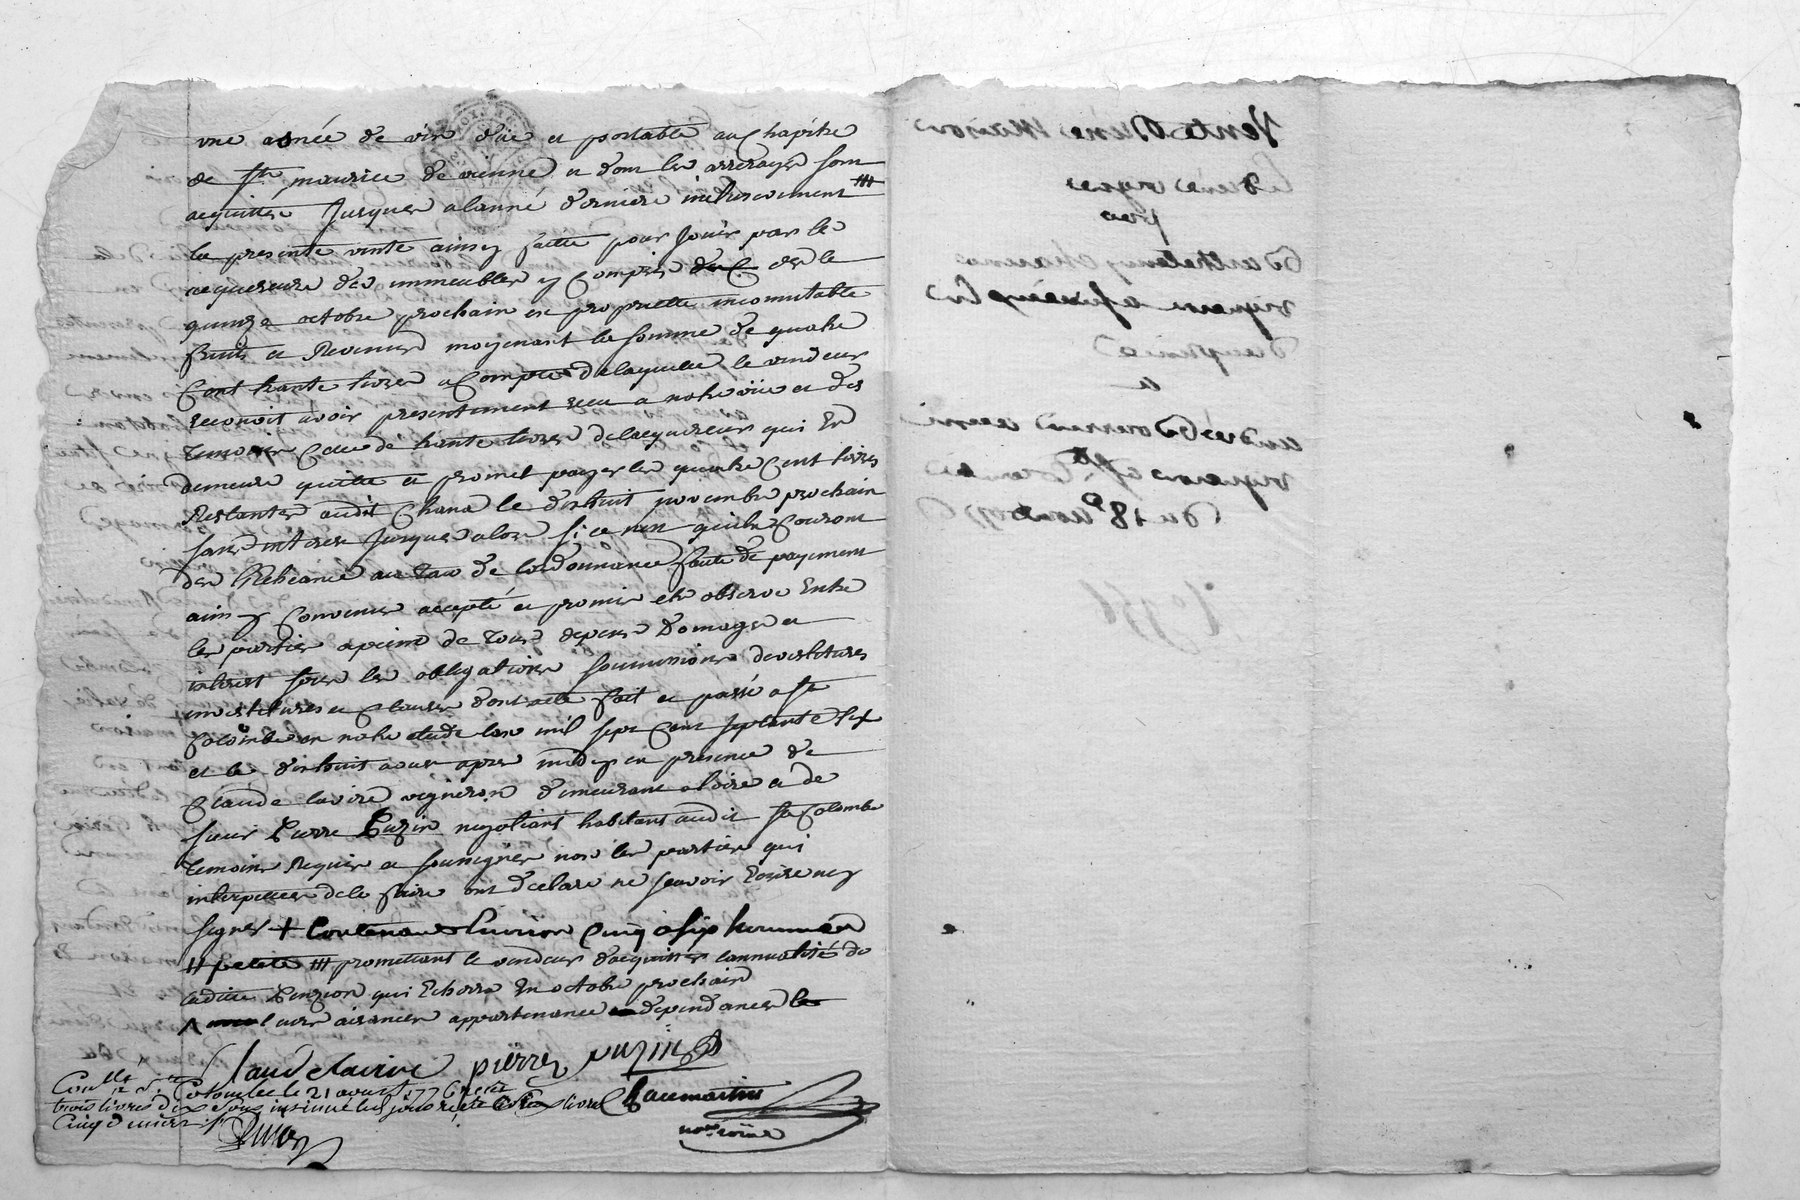 une asnée de vin düe et portable au Chapitre
de St maurice de vienne et dont les arrerages sont
acquittes Jusques a lanné derniere inclusivement ///
la presente vente ainsy faitte pour Jouir par le
acquereure des immeubles y Compris des le
quinze octobre prochain en proprietté incomutable
fruits et Revenus moyenant la somme de quatre
Cent trante livres a Compte de laquelle le vendeur
reconoit avoir presentement reçu a notre vüe et des
Temoins Celle de trante livres de lacquereur qui En
demeure quitte et promet payer les quatre Cent livres
Restantes audit Chana le dixhuit novembre prochain
sans interes Jusques alors si ce non quils Couront
des Echeance au taux de lordonnance faute de payement
ainsy Convenus accepté et promis etre observé Entre
les parties a peine de Tous depens Domages et
interest sous les obligations soumissions devestitures
investitures et Clauses dont acte fait et passé a Ste
Colombe en notre etude lan mil sept Cent septante six
et le dixhuit aoust apres midy en presence de
Claude lavire vigneron demeurant a loire et de
sieur Pierre Cuzin negotiant habitant audit Ste Colombe
temoins Requis et soussignés non les parties qui
interpellees de le faire ont declaré ne scavoir Ecrire ny
signer + Contenant Environ Cinq a six hommées
// petete /// promettant le vendeur dacquitter lannualité de
ladite Penzion qui Echerra En octobre prochain
leurs aisances appartenance dependances
Claude lavire pierre cuzin
Coullé a Ste Colombe le 21 aoust 1776 reçu
trois livres dix sous insinué led jour reçu livres
Cinq deniers
notre roial
Vente Dune Maison
par
Berthelemy
vigneron
Dauphiné
a
vigneron a Ste Colombe
Du 18e aoust 1776